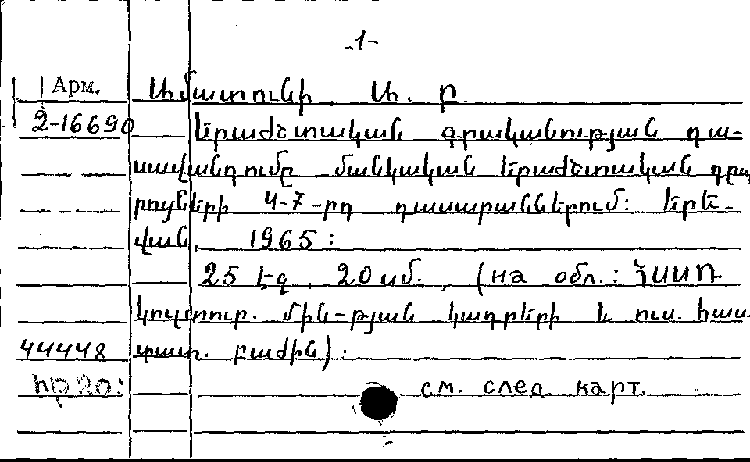 -1-
Арм. Ամատունի Ա. Ը
2-16690 Երաժշտական գրականության դա-
սավանդումը մանկական երաժշտական դպ
րոցների 4-7-րդ դասարաններում: Երե-
վան, 1965:
25 էջ, 20 սմ. (на обл.: ՀՍՍՌ
կուլտուր. մին-թյան կադրերի և ուս. հաս
44448 տատ. բաժին):
см. след карт.